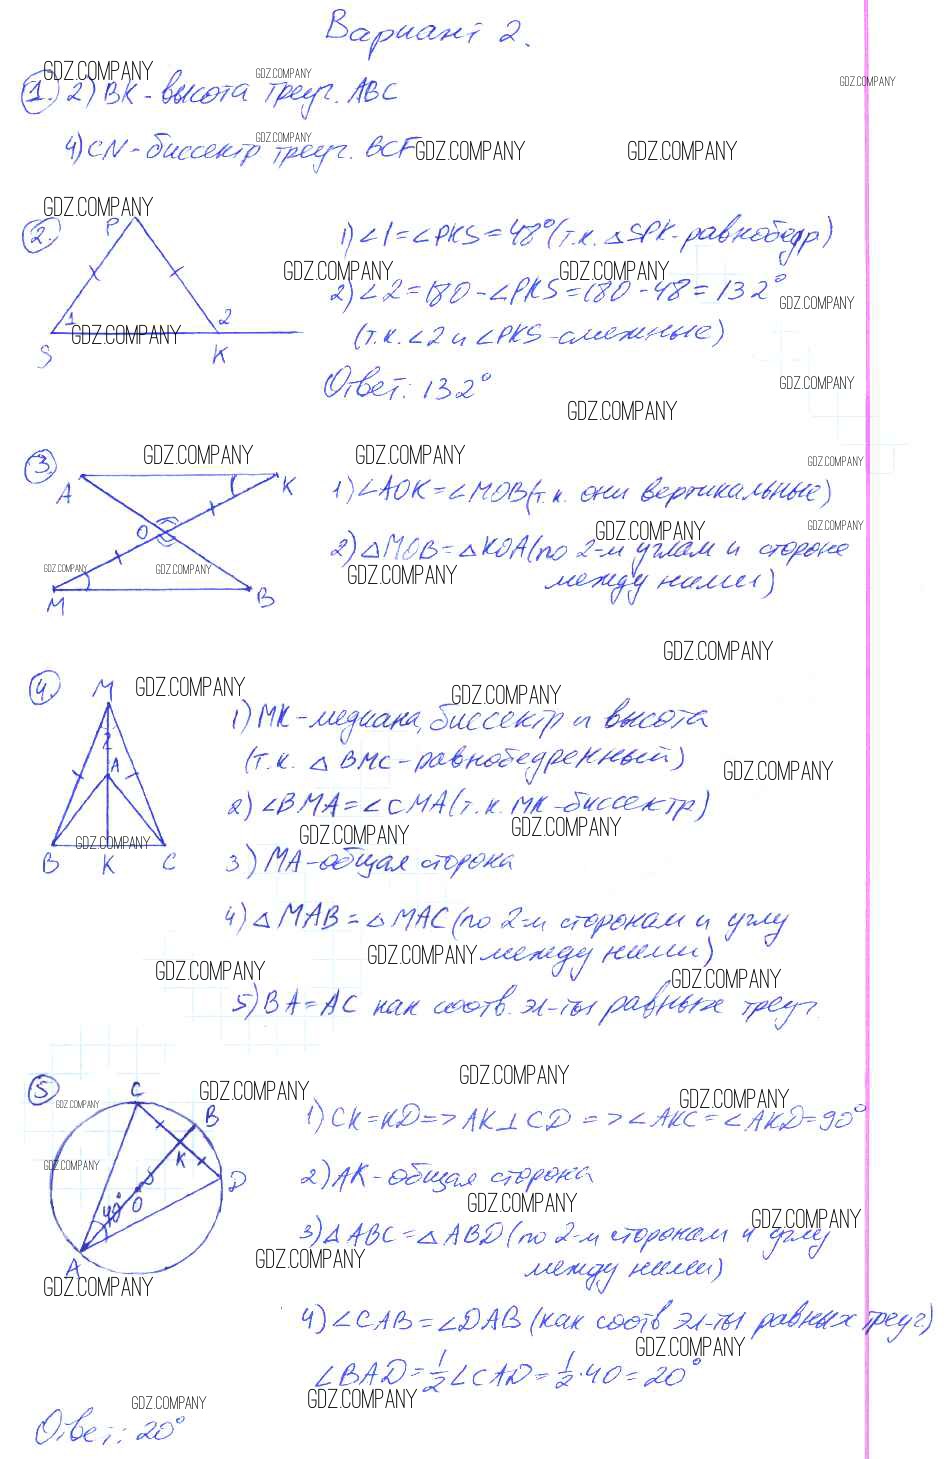 Вариант 2.
GDZ.COMPANY GDZ.COMPANY GDZ.COMPANY
1. 2) BK - высота треуг. ABC
GDZ.COMPANY
4) CN - биссектр треуг. BCF GDZ.COMPANY GDZ.COMPANY
GDZ.COMPANY
2. P 1) ∠1 = ∠PKS = 48° (т.к. △SPK - равнобедр)
GDZ.COMPANY GDZ.COMPANY
2) ∠2 = 180 - ∠PKS = 180 - 48 = 132°
GDZ.COMPANY
1 2
GDZ.COMPANY (т.к. ∠2 и ∠PKS - смежные)
S K
Ответ: 132° GDZ.COMPANY
GDZ.COMPANY
GDZ.COMPANY GDZ.COMPANY GDZ.COMPANY
3. A K 1) ∠AOK = ∠MOB (т.к. они вертикальные)
O GDZ.COMPANY GDZ.COMPANY
2) △MOB = △KOA (по 2-м углам и стороне
GDZ.COMPANY GDZ.COMPANY GDZ.COMPANY
между ними)
M B
GDZ.COMPANY
4. M GDZ.COMPANY GDZ.COMPANY
1) MK - медиана, биссектр и высота
(т.к. △BMC - равнобедренный)
A GDZ.COMPANY
2) ∠BMA = ∠CMA (т.к. MK - биссектр)
GDZ.COMPANY GDZ.COMPANY GDZ.COMPANY
B K C 3) MA - общая сторона
4) △MAB = △MAC (по 2-м сторонам и углу
GDZ.COMPANY между ними)
GDZ.COMPANY GDZ.COMPANY
5) BA = AC как соотв. эл-ты равных треуг.
GDZ.COMPANY
5. C GDZ.COMPANY GDZ.COMPANY
GDZ.COMPANY B 1) CK = KD => AK⊥CD => ∠AKC = ∠AKD = 90°
GDZ.COMPANY K
D 2) AK - общая сторона
40° O GDZ.COMPANY GDZ.COMPANY
3) △ABC = △ABD (по 2-м сторонам и углу
A GDZ.COMPANY между ними)
GDZ.COMPANY
4) ∠CAB = ∠DAB (как соотв эл-ты равных треуг)
GDZ.COMPANY
∠BAD = 1/2 ∠CAD = 1/2 · 40 = 20°
GDZ.COMPANY GDZ.COMPANY
Ответ: 20°